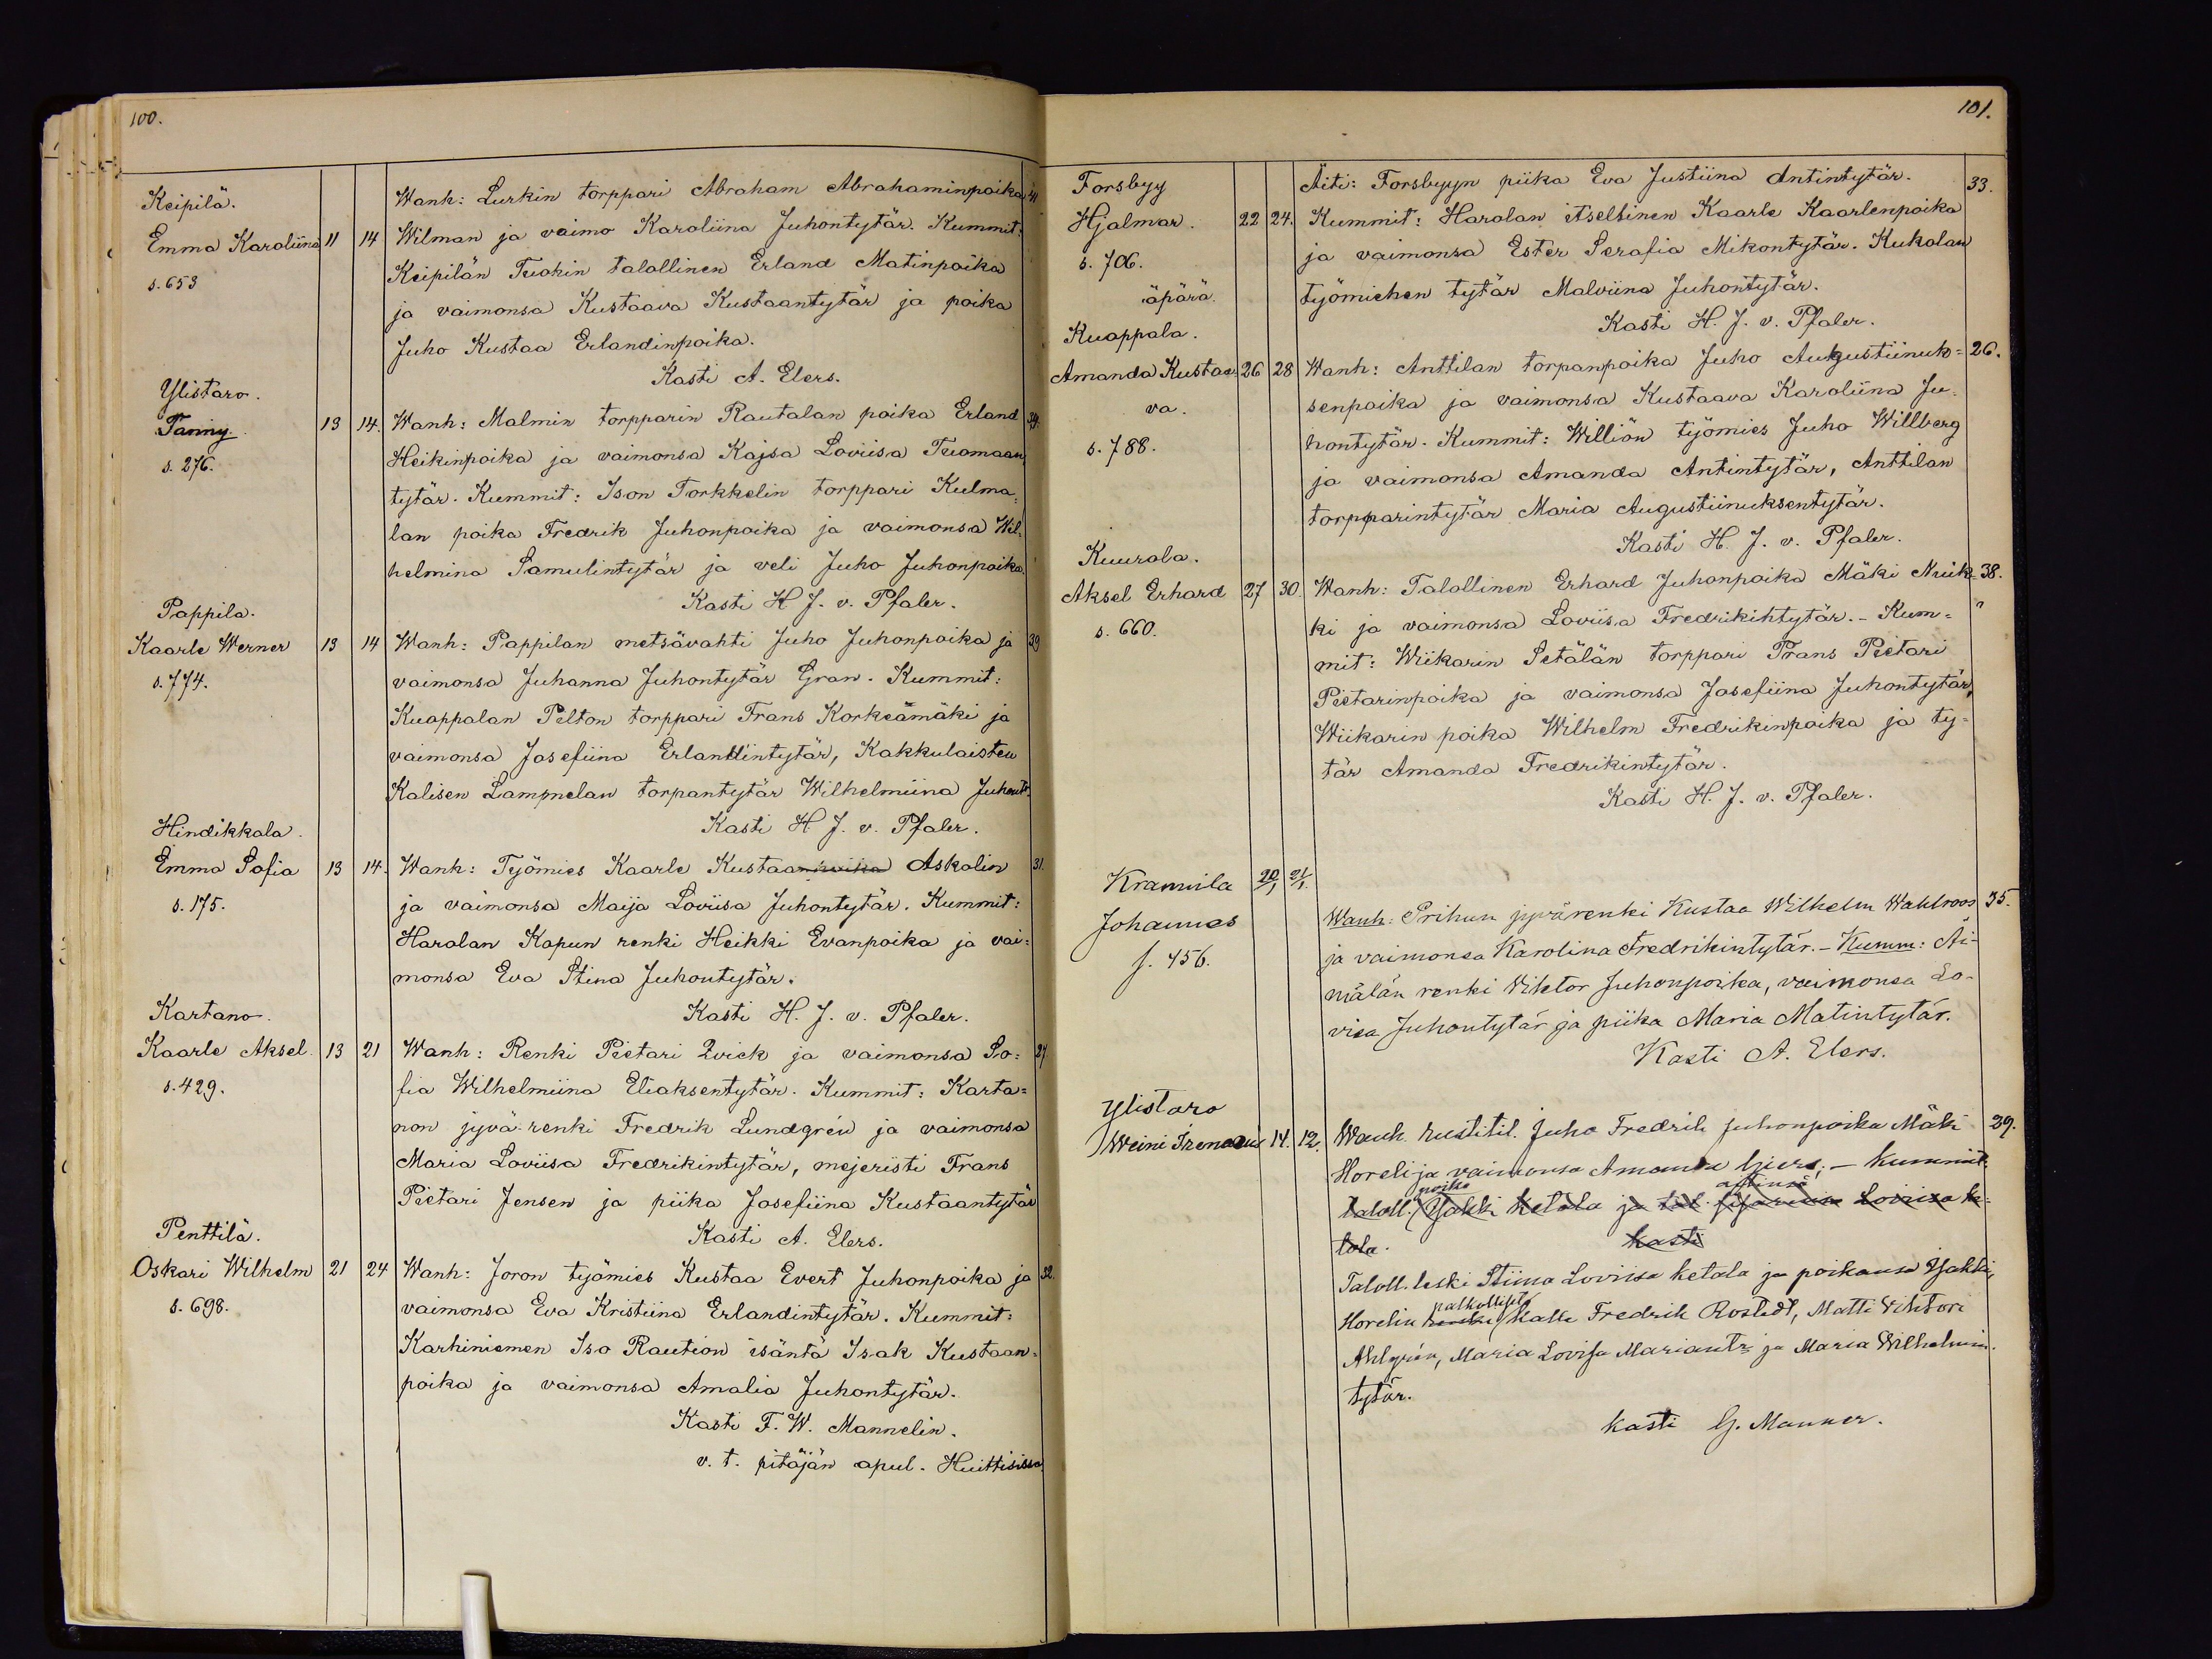 100.
Keipilä.
Wanh: Lurkin torppari Abraham Abrahaminpoika 41
Emma Karoliina 11 14 Wilman ja vaimo Karoliina Juhontytär. Kummit:
s. 653
Keipilän Tuokin talollinen Erland Matinpoika
ja vaimonsa Kustaava Kustaantytär ja poika
Juho Kustaa Erlandinpoika.
Kasti A. Elers.
Ylistaro.
Fanny. 13 14. Wanh: Malmin torpparin Rautalan poika Erland 34.
s. 276.
Heikinpoika ja vaimonsa Kajsa Loviisa Tuomaan
tytär. Kummit: Ison Torkkelin torppari Kulma-
lan poika Fredrik Juhonpoika ja vaimonsa Wil-
helmina Samulintytär ja veli Juho Juhonpoika.
Kasti H J. v. Pfaler.
Pappila.
Kaarle Werner 13 14 Wanh: Pappilan metsävahti Juho Juhonpoika ja 39
s. 774.
vaimonsa Juhanna Juhontytär Gran. Kummit:
Kuappalan Pelton torppari Frans Korkeamäki ja
vaimonsa Josefiina Erlandintytär, Kakkulaisten
Kalisen Lammelan torpantytär Wilhelmiina Juhont.
Kasti H J. v. Pfaler.
Hindikkala.
Emma Sofia 13 14. Wanh: Työmies Kaarle Kustaanpoika Askolin 31.
s. 175.
ja vaimonsa Maija Loviisa Juhontytär. Kummit:
Haralan Kapun renki Heikki Evanpoika ja vai=
monsa Eva Stina Juhontytär.
Kasti H. J. v. Pfaler.
Kartano.
Kaarle Aksel. 13 21 Wanh: Renki Pietari Qvick ja vaimonsa So= 27
s. 429.
fia Wilhelmiina Eliaksentytär. Kummit: Karta=
non jyvä-renki Fredrik Lundgrén ja vaimonsa
Maria Loviisa Fredrikintytär, mejeristi Frans
Pietari Jensen ja piika Josefiina Kustaantytär
Kasti A. Elers.
Penttilä.
Oskari Wilhelm 21 24 Wanh: Joron työmies Kustaa Evert Juhonpoika ja 32.
s. 698.
vaimonsa Eva Kristiina Erlandintytär. Kummit:
Karhiniemen Iso Raution isäntä Isak Kustaan-
poika ja vaimonsa Amalia Juhontytär.
Kasti F. W. Mannelin.
v. t. pitäjän apul. Huittisissa.
101.
Forsbyy
Äiti: Forsbyyn piika Eva Justiina Antintytär. 33.
Hjalmar. 22 24. Kummit: Haralan itsellinen Kaarle Kaarlenpoika
s. 706.
ja vaimonsa Ester Serafia Mikontytär. Kukolan
äpärä.
työmiehen tytär Malviina Juhontytär.
Kasti H. J. v. Pfaler.
Kuappala.
Amanda Kustaa= 26 28 Wanh: Anttilan torpanpoika Juho Augustiinuk= 26.
va.
senpoika ja vaimonsa Kustaava Karoliina Ju-
s. 788.
hontytär. Kummit: Williön työmies Juho Willberg
ja vaimonsa Amanda Antintytär, Anttilan
torpparintytär Maria Augustiinuksentytär.
Kasti H. J. v. Pfaler.
Kuurola.
Aksel Erhard 27 30. Wanh: Talollinen Erhard Juhonpoika Mäki Nuik= 38.
s. 660.
ki ja vaimonsa Loviisa Fredrikintytär. – Kum=
mit: Wiikarin Setälän torppari Frans Pietari
Pietarinpoika ja vaimonsa Josefiina Juhontytär,
Wiikarin poika Wilhelm Fredrikinpoika ja ty=
tär Amanda Fredrikintytär.
Kasti H. J. v. Pfaler.
Krannila 20/1 21/1.
Johannes
Wanh: Prihun jyvärenki Kustaa Wilhelm Wahlroos 35.
s. 456.
ja vaimonsa Karolina Fredrikintytär. – Kumm: Äi-
mälän renki Wiktor Juhonpoika, vaimonsa Lo-
visa Juhontytär ja piika Maria Matintytär.
Kasti A. Elers.
Ylistaro
Weini Irenaeus 14. 12. Wanh. rustitil. Juho Fredrik Juhonpoika Mäki 29.
Horeli ja vaimonsa Amanda Giers. – Kummit:
poika
taloll. Yrkki Ketola ja tal. Loviisa Ke-
tola. kasti
Taloll. leski Stiina Loviisa Ketola ja poikansa Yrkki,
palkolliset
Horelin renki Kalle Fredrik Rostedt, Matti Vihtori
Ahlgrén, Maria Lovisa Mariantr ja Maria Wilhelmin-
tytär.
kasti G. Manner.